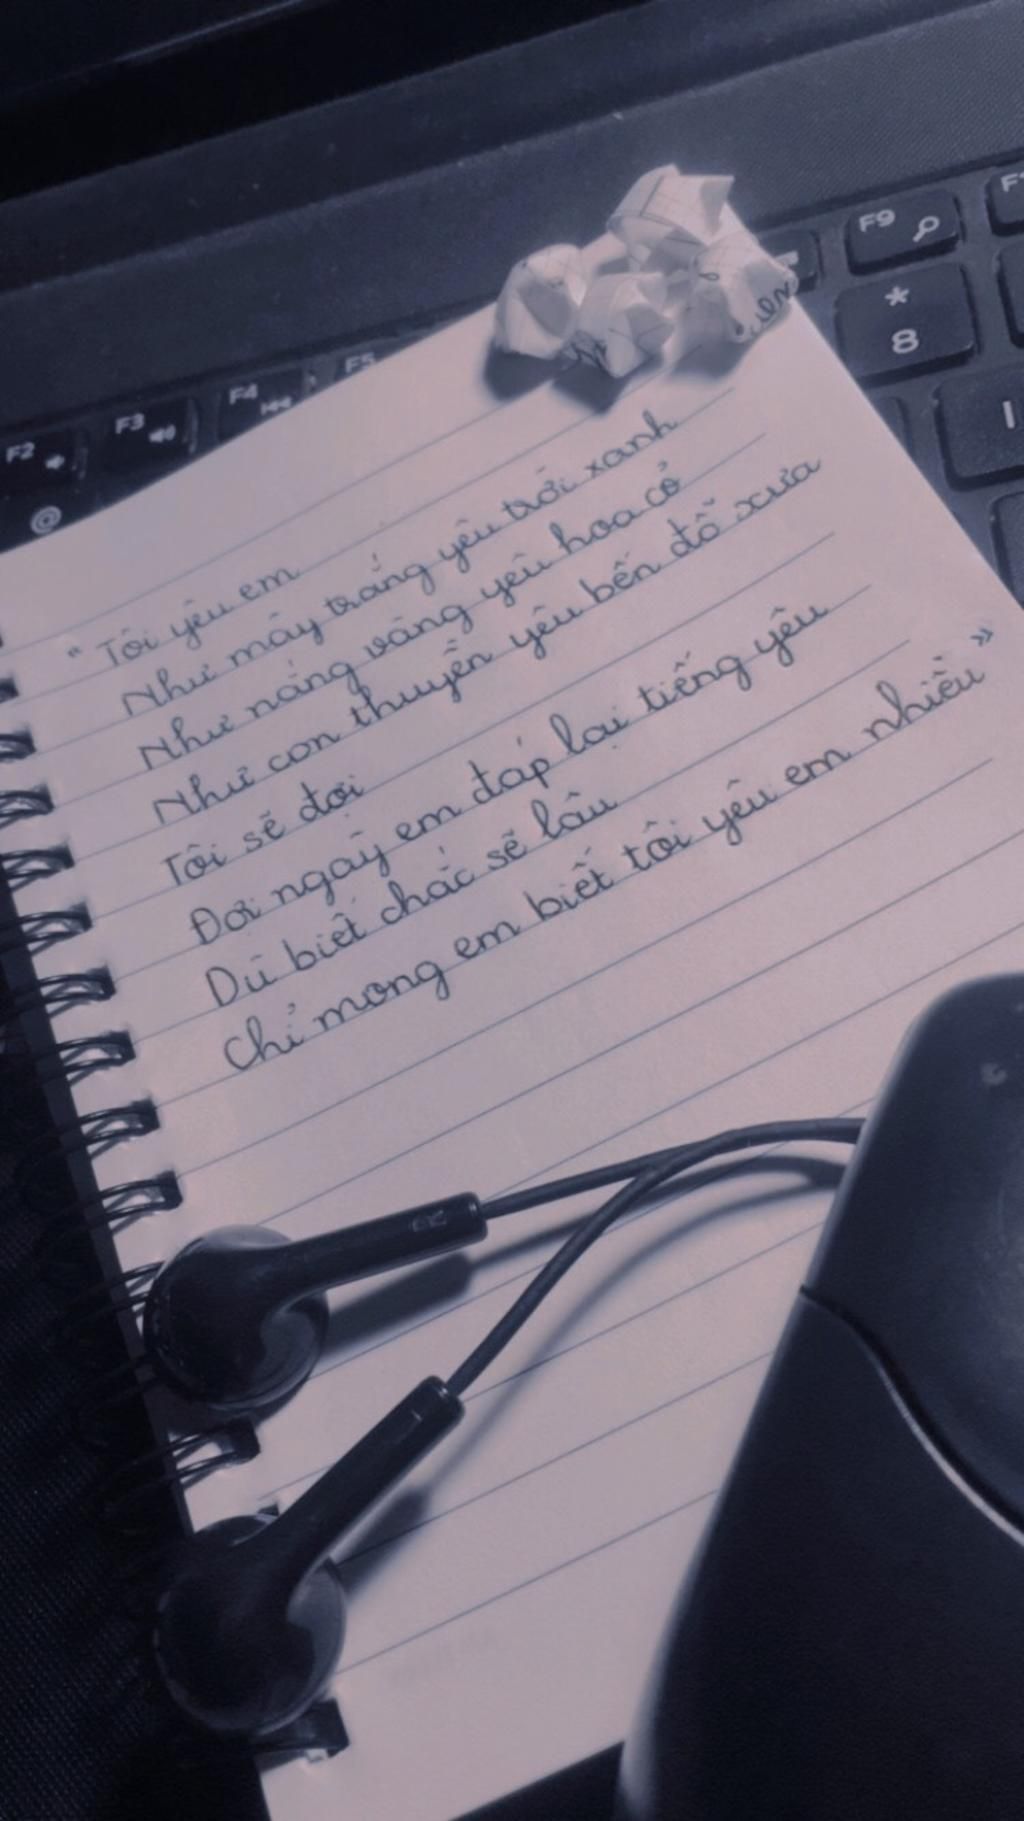 F2
F3
F4
F5
F9
@
*
8
"Tôi yêu em
Như mây trắng yêu trời xanh
Như nắng vàng yêu hoa cỏ
Như con thuyền yêu bến đỗ xưa
Tôi sẽ đợi
Đợi ngày em đáp lại tiếng yêu
Dù biết chắc sẽ lâu
Chỉ mong em biết tôi yêu em nhiều"